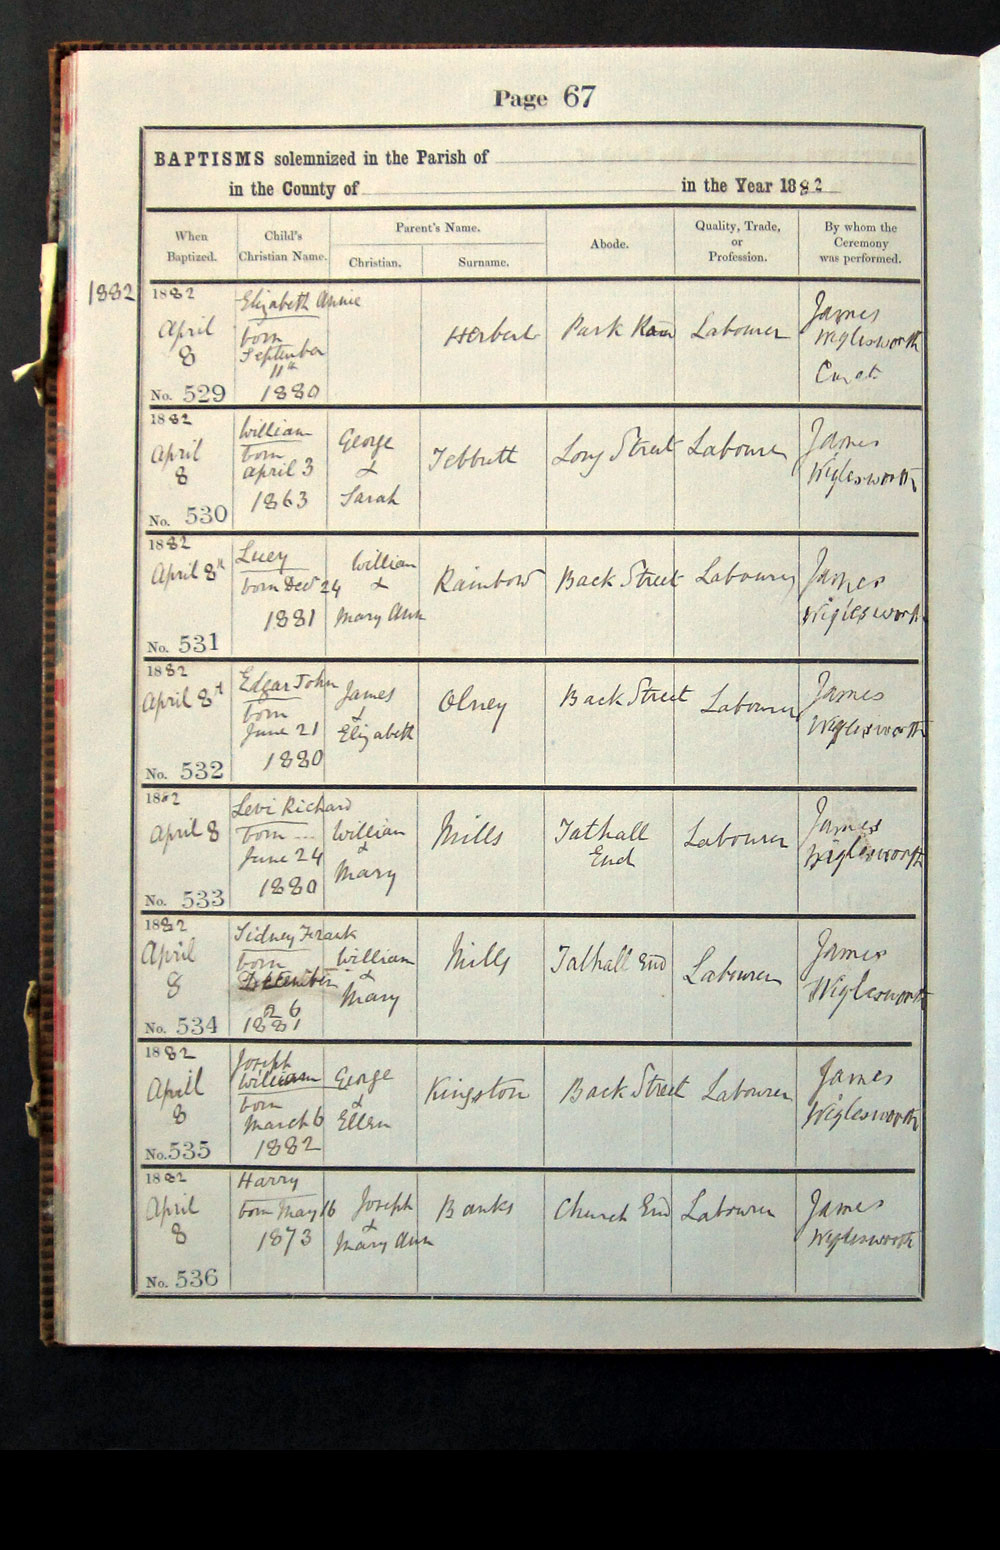 Page 67
BAPTISMS solemnized in the Parish of
in the County of in the Year 1882
When Baptized. Child's Christian Name. Parent's Name. Christian. Surname. Abode. Quality, Trade, or Profession. By whom the Ceremony was performed.
1882
1882
April
8
No. 529
Elizabeth Annie
born
September
11th
1880
Herbert
Park
Labourer
James
Wiglesworth
Curate
1882
April
8
No. 530
William
born
April 3
1863
George
&
Sarah
Tebbutt
Long Street
Labourer
James
Wiglesworth
1882
April 8th
No. 531
Lucy
born Decr 24
1881
William
&
Mary Ann
Rainbow
Back Street
Labourer
James
Wiglesworth
1882
April 8th
No. 532
Edgar John
born
June 21
1880
James
&
Elizabeth
Olney
Back Street
Labourer
James
Wiglesworth
1882
April 8
No. 533
Levi Richard
born
June 24
1880
William
&
Mary
Mills
Tathall
End
Labourer
James
Wiglesworth
1882
April
8
No. 534
Sidney Frank
born
December
26
1881
William
&
Mary
Mills
Tathall End
Labourer
James
Wiglesworth
1882
April
8
No. 535
Joseph
William
born
March 6
1882
George
&
Ellen
Kingston
Back Street
Labourer
James
Wiglesworth
1882
April
8
No. 536
Harry
born May 16
1873
Joseph
&
Mary Ann
Banks
Church End
Labourer
James
Wiglesworth